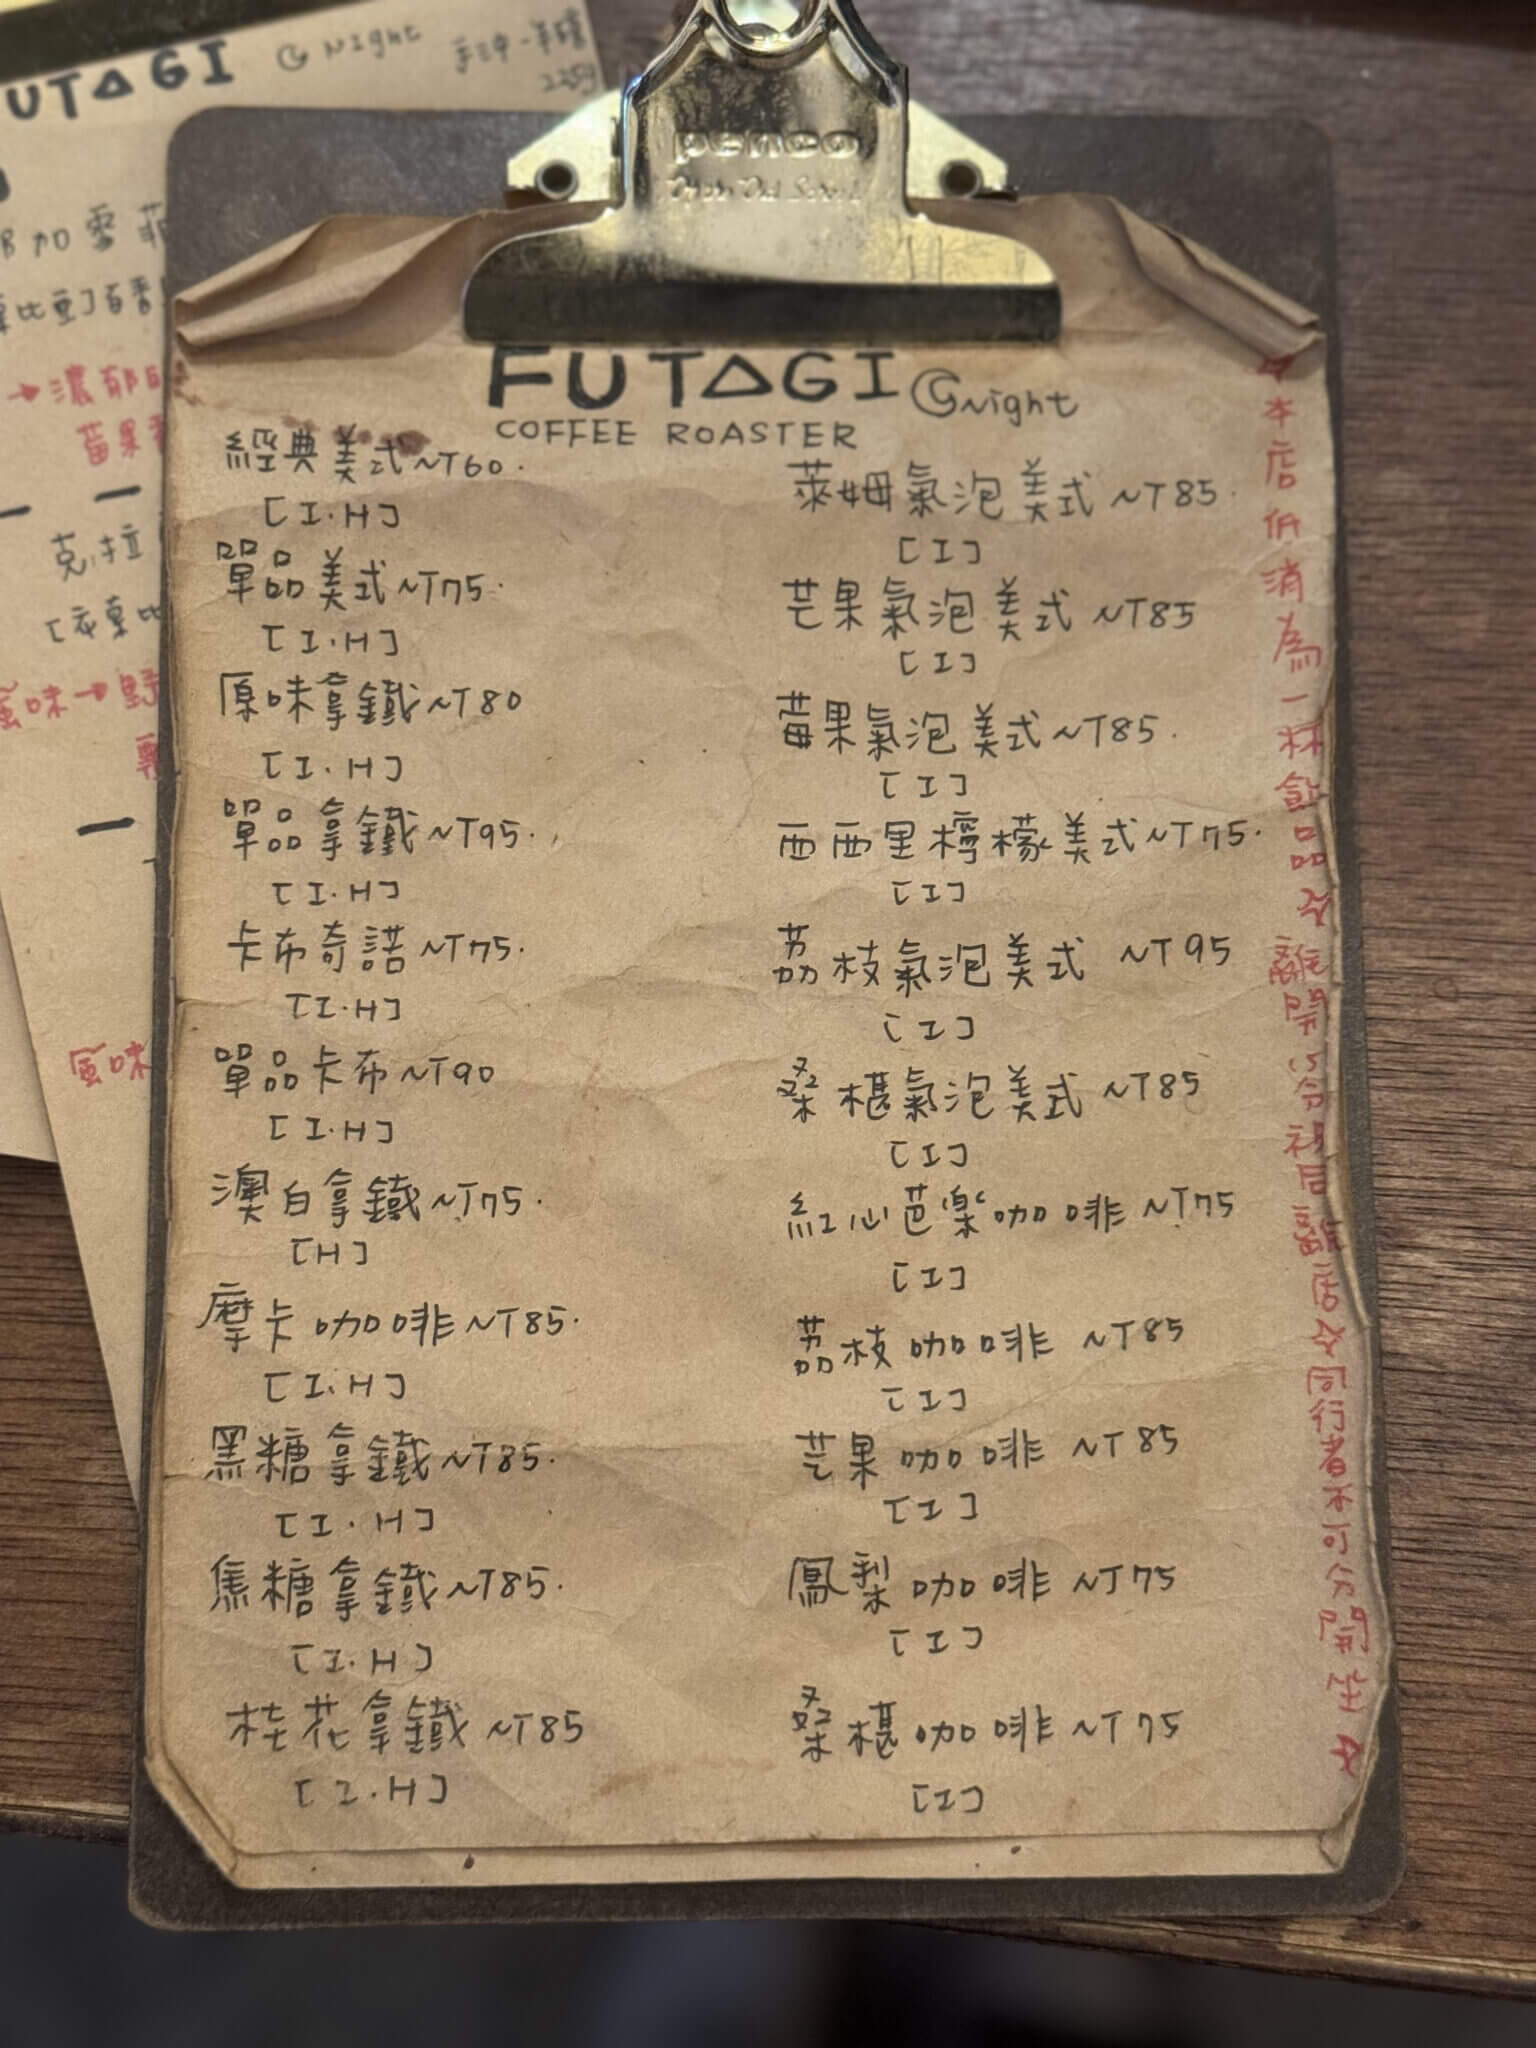 FUTAGI
Night
手沖-單品
225g
加雪菲
→濃郁
莓果
克拉
風味→野
風味
penco
FUTAGI Night
COFFEE ROASTER
經典美式 NT60.
[I.H]
單品美式 NT75.
[I.H]
原味拿鐵 NT80
[I.H]
單品拿鐵 NT95.
[I.H]
卡布奇諾 NT75.
[I.H]
單品卡布 NT90
[I.H]
澳白拿鐵 NT75.
[H]
摩卡咖啡 NT85.
[I.H]
黑糖拿鐵 NT85.
[I.H]
焦糖拿鐵 NT85.
[I.H]
桂花拿鐵 NT85
[I.H]
萊姆氣泡美式 NT85.
[I]
芒果氣泡美式 NT85
[I]
莓果氣泡美式 NT85.
[I]
西西里檸檬美式 NT75.
[I]
荔枝氣泡美式 NT95
[I]
桑椹氣泡美式 NT85
[I]
紅心芭樂咖啡 NT75
[I]
荔枝咖啡 NT85
[I]
芒果咖啡 NT85
[I]
鳳梨咖啡 NT75
[I]
桑椹咖啡 NT75
[I]
☆本店低消為一杯飲品☆離開15分視同離店☆同行者不可分開坐☆